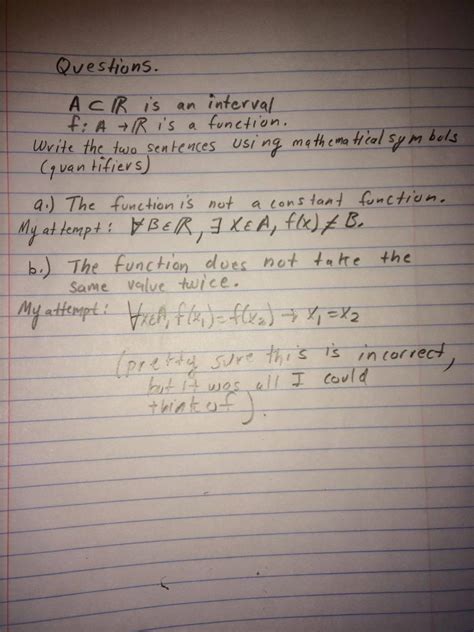 Questions.
A ⊂ ℝ is an interval
f: A → ℝ is a function.
Write the two sentences using mathematical symbols
(quantifiers)
a.) The function is not a constant function.
My attempt: ∀B∈ℝ, ∃ x∈A, f(x) ≠ B.
b.) The function does not take the
same value twice.
My attempt: ∀x∈A, f(x₁)=f(x₂) → x₁=x₂
(pretty sure this is incorrect,
but it was all I could
think of).